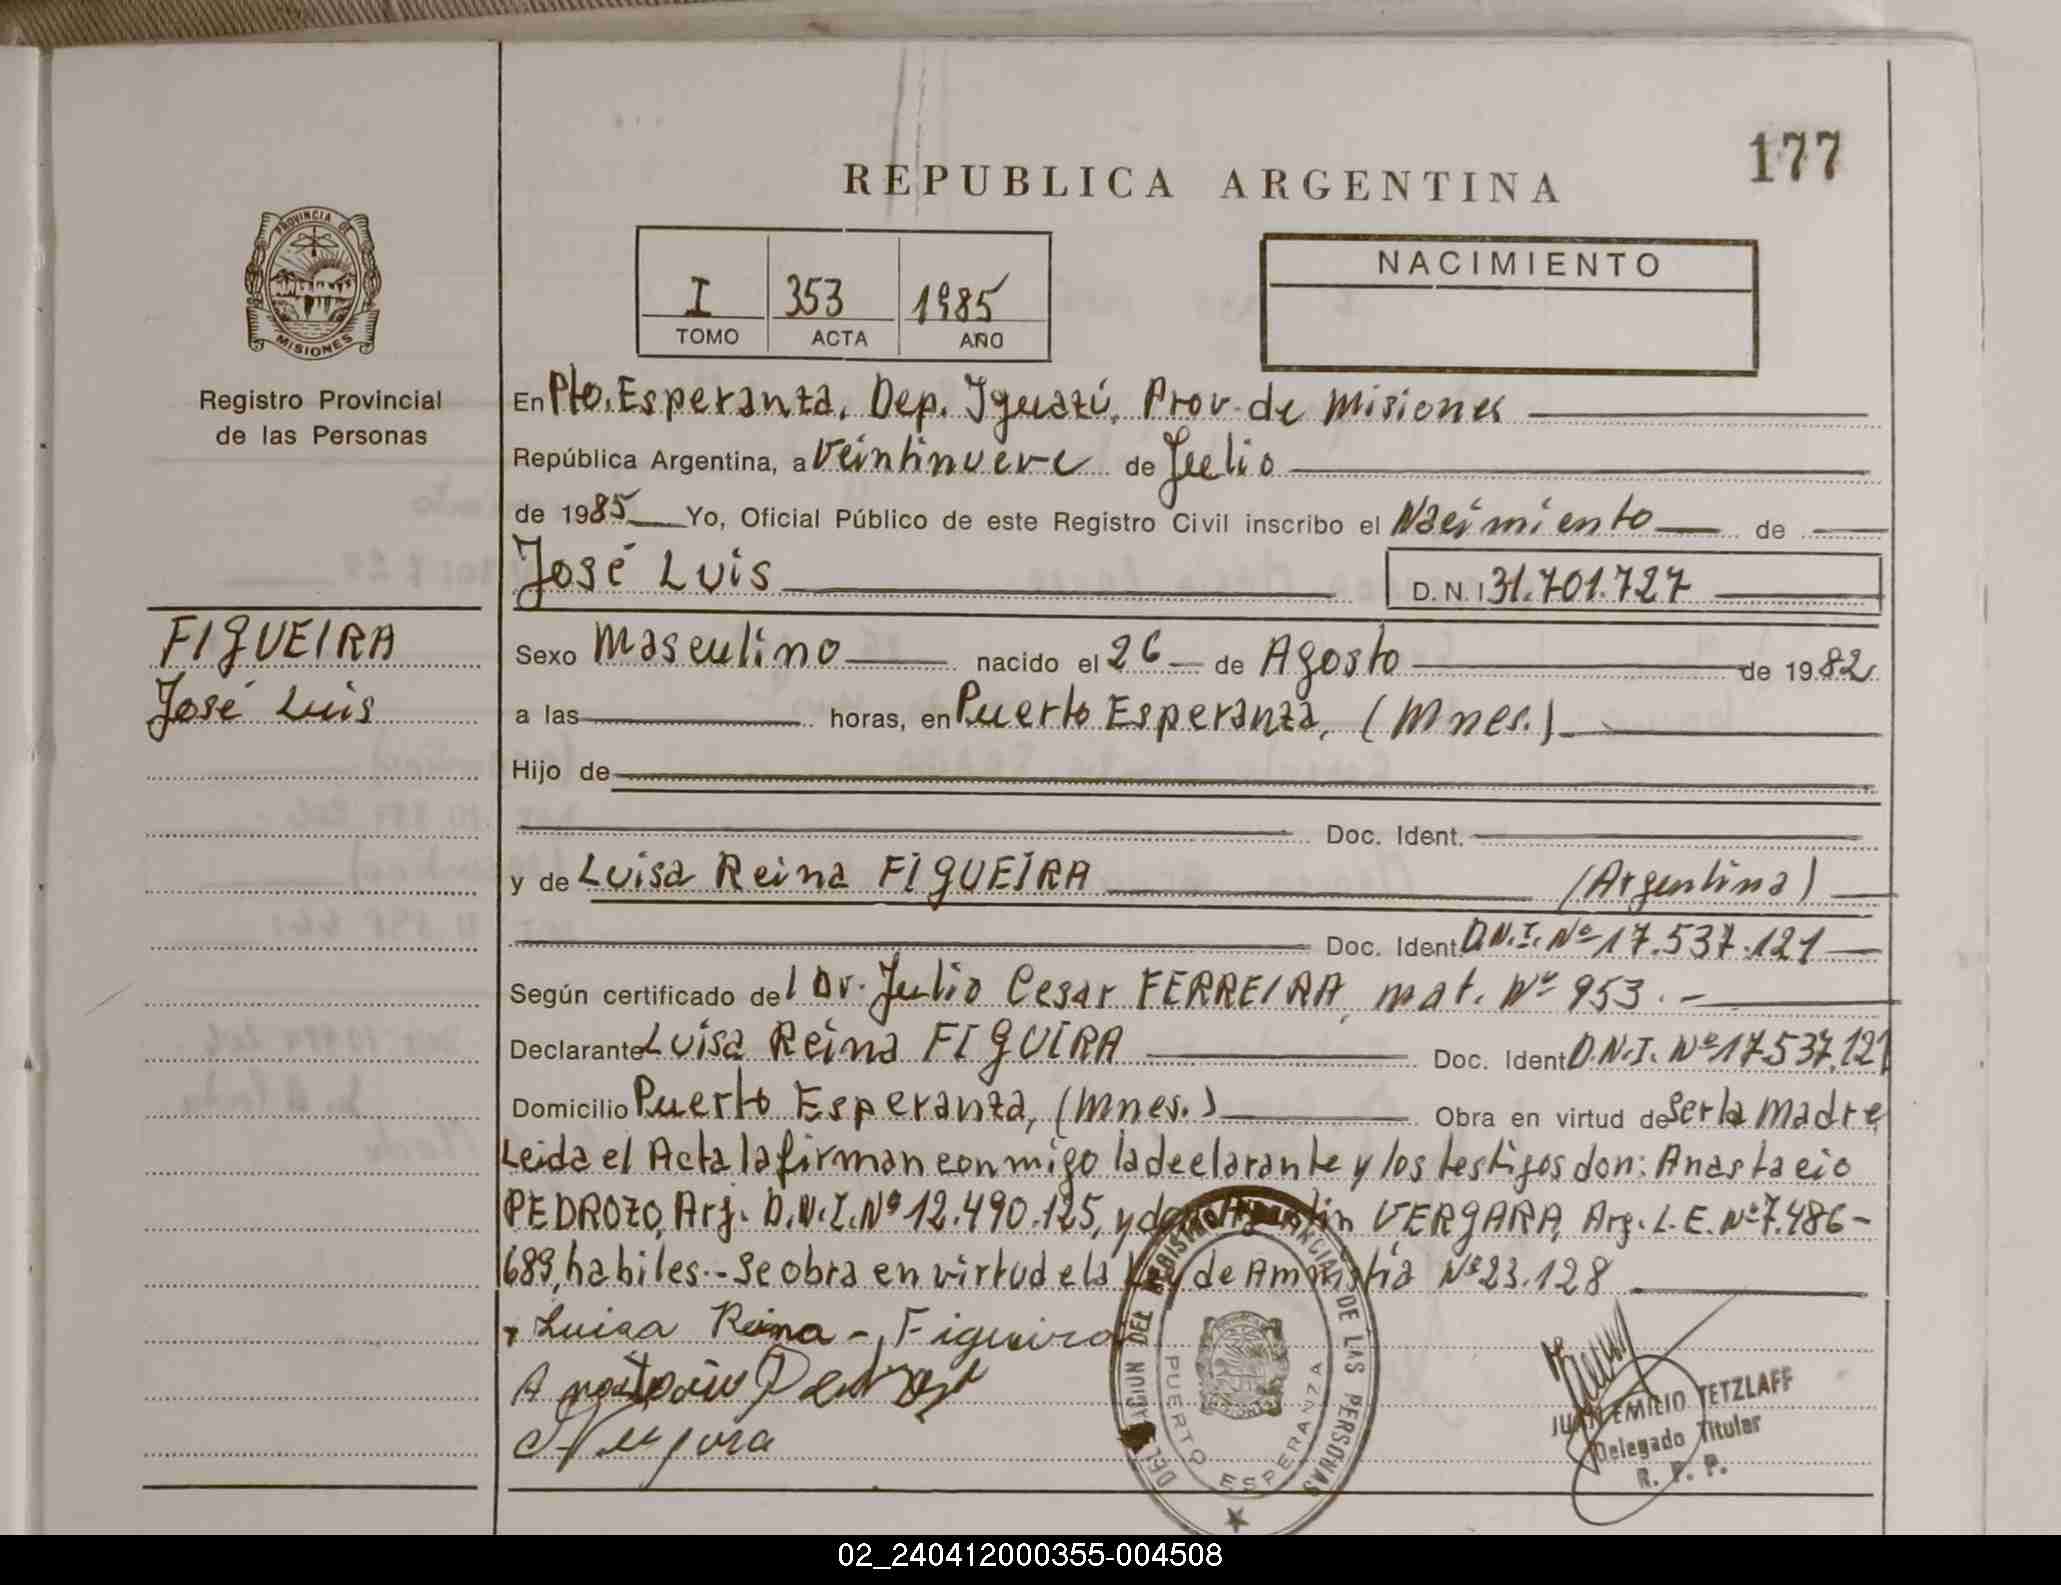 177
REPUBLICA ARGENTINA
PROVINCIA DE
MISIONES
Registro Provincial
de las Personas
I 353 1985
TOMO ACTA AÑO
NACIMIENTO
En Pto. Esperanza, Dep. Iguazú, Prov. de Misiones
República Argentina, a Veintinueve de Julio
de 1985 Yo, Oficial Público de este Registro Civil inscribo el Nacimiento de
José Luis D.N.I 31.701.727
FIGUEIRA
José Luis
Sexo Masculino nacido el 26 de Agosto de 1982
a las horas, en Puerto Esperanza, (Mnes.)
Hijo de
Doc. Ident.
y de Luisa Reina FIGUEIRA (Argentina)
Doc. Ident. D.N.I. Nº 17.537.121
Según certificado del Dr. Julio Cesar FERREIRA, mat. Nº 953.-
Declarante Luisa Reina FIGUIRA Doc. Ident. D.N.I. Nº 17.537.121
Domicilio Puerto Esperanza, (Mnes.) Obra en virtud de ser la madre
Leida el Acta la firman conmigo la declarante y los testigos don: Anastacio
PEDROZO, Arg. D.N.I. Nº 12.490.125, y don VERGARA, Arg. L.E. Nº 7.486-
689, habiles.- Se obra en virtud e la Ley de Amnistia Nº 23.128
Luisa Reina - Figueira
DELEGACION DEL REGISTRO PROVINCIAL DE LAS PERSONAS
PUERTO ESPERANZA
JUAN EMILIO TETZLAFF
Delegado Titular
R. P. P.
02_240412000355-004508